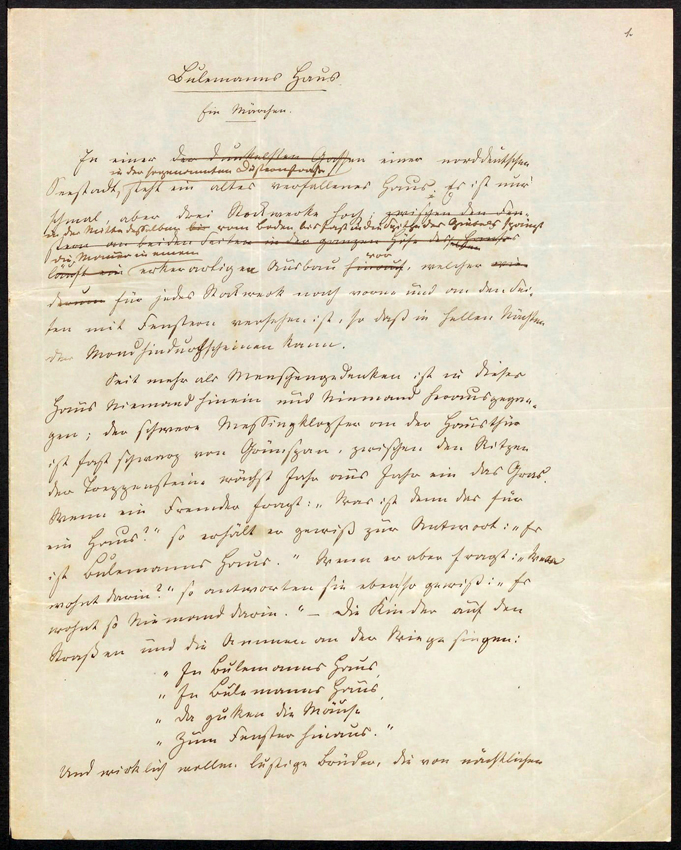 1.
Bulemanns Haus.
Ein Märchen.
In einer der dunkelsten Gassen einer norddeutschen
in der sogenannten Düsternstraße
Seestadt, steht ein altes verfallenes Haus. Es ist nur
schmal, aber drei Stockwerke hoch; zwischen den Fen-
in der Mitte desselben vom Boden bis fast in die Spitze des Giebels springt
stern an beiden Seiten in der ganzen Höhe des Hauses
die Mauer in einem
läuft ein erkerartigen Ausbau hinauf, welcher
vor
für jedes Stockwerk nach vorne und an den Sei-
ten mit Fenstern versehen ist, so daß in hellen Nächten
der Mond hindurchscheinen kann.
Seit mehr als Menschengedenken ist in dieses
Haus Niemand hinein und Niemand herausgegan-
gen; der schwere Messingklopfer an der Hausthür
ist fast schwarz von Grünspan, zwischen den Ritzen
der Treppensteine wächst Jahr aus Jahr ein das Gras.
Wenn ein Fremder fragt: „Was ist denn das für
ein Haus?“ so erhält er gewiß zur Antwort: „Es
ist Bulemanns Haus.“ Wenn er aber fragt: „Wer
wohnt darin?“ so antworten sie ebenso gewiß: „Es
wohnt so Niemand darin.“ – Die Kinder auf den
Straßen und die Ammen an der Wiege singen:
„In Bulemanns Haus,
„In Bulemanns Haus,
„Da gucken die Mäuse
„Zum Fenster hinaus.“
Und wirklich wollen lustige Brüder, die von nächtlichen